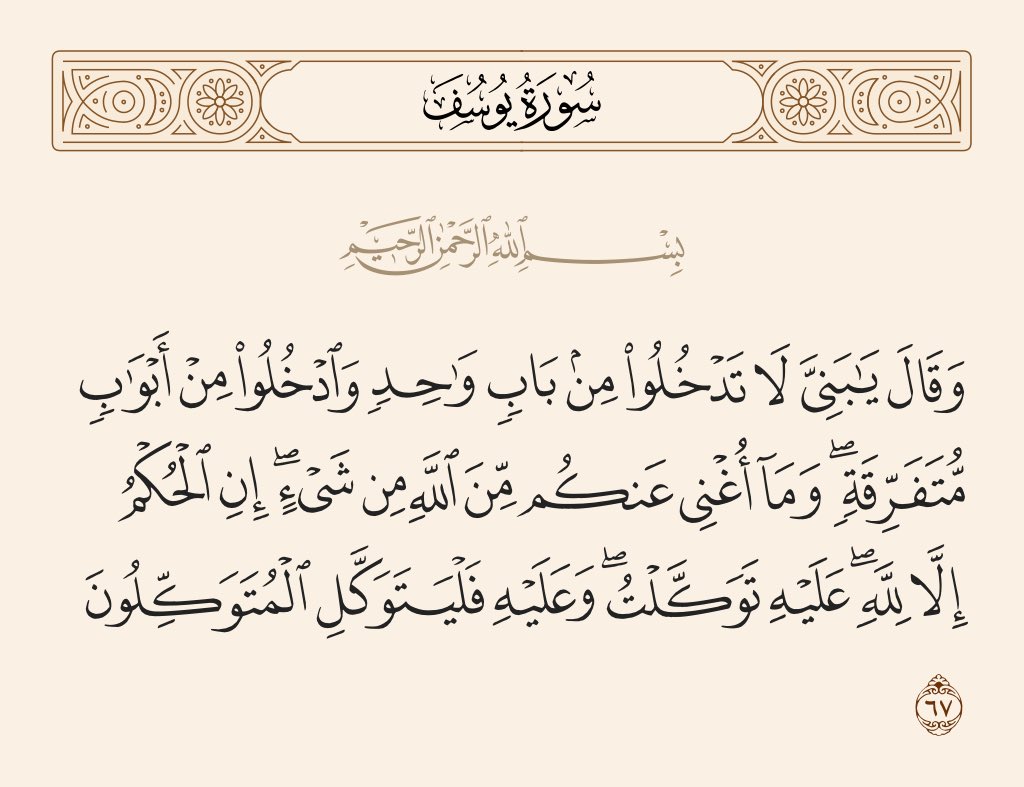 سُورَةُ يُوسُفَ
بِسْمِ ٱللَّهِ ٱلرَّحْمَٰنِ ٱلرَّحِيمِ
وَقَالَ يَـٰبَنِىَّ لَا تَدْخُلُوا۟ مِنۢ بَابٍ وَٰحِدٍ وَٱدْخُلُوا۟ مِنْ أَبْوَٰبٍ
مُّتَفَرِّقَةٍ ۖ وَمَآ أُغْنِى عَنكُم مِّنَ ٱللَّهِ مِن شَىْءٍ ۖ إِنِ ٱلْحُكْمُ
إِلَّا لِلَّهِ ۖ عَلَيْهِ تَوَكَّلْتُ ۖ وَعَلَيْهِ فَلْيَتَوَكَّلِ ٱلْمُتَوَكِّلُونَ
٦٧